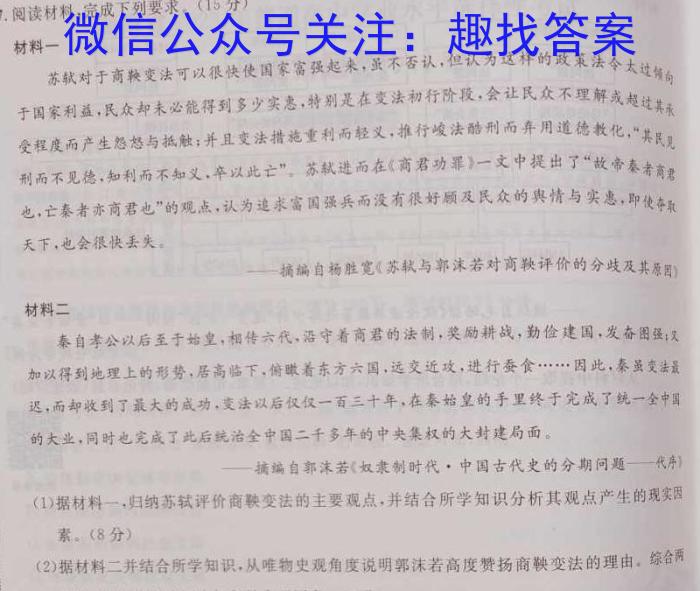 7.阅读材料,完成下列要求。(15分)
微信公众号关注：趣找答案
材料一
苏轼对于商鞅变法可以很快使国家富强起来,虽不否认,但认为这样的政策法令太过倾向
于国家利益,民众却未必能得到多少实惠,特别是在变法初行阶段,会让民众不理解或超过其承
受程度而产生怨怒与抵触;并且变法措施重利而轻义,推行峻法酷刑而弃用道德教化,“其民见
刑而不见德,知利而不知义,卒以此亡”。苏轼进而在《商君功罪》一文中提出了“故帝秦者商君
也,亡秦者亦商君也”的观点,认为追求富国强兵而没有很好顾及民众的舆情与实惠,即使夺取
天下,也会很快丢失。
——摘编自杨胜宽《苏轼与郭沫若对商鞅评价的分歧及其原因》
材料二
秦自孝公以后至于始皇,相传六代,沿守着商君的法制,奖励耕战,勤俭建国,发奋图强;又
加以得到地理上的形势,居高临下,俯瞰着东方六国,远交近攻,进行蚕食……因此,秦虽变法最
迟,而却收到了最大的成功,变法以后仅仅一百三十年,在秦始皇的手里终于完成了统一全中国
的大业,同时也完成了此后统治全中国二千多年的中央集权的大封建局面。
——摘编自郭沫若《奴隶制时代·中国古代史的分期问题——代序》
(1)据材料一,归纳苏轼评价商鞅变法的主要观点,并结合所学知识分析其观点产生的现实因
素。(8分)
(2)据材料二并结合所学知识,从唯物史观角度说明郭沫若高度赞扬商鞅变法的理由。综合两